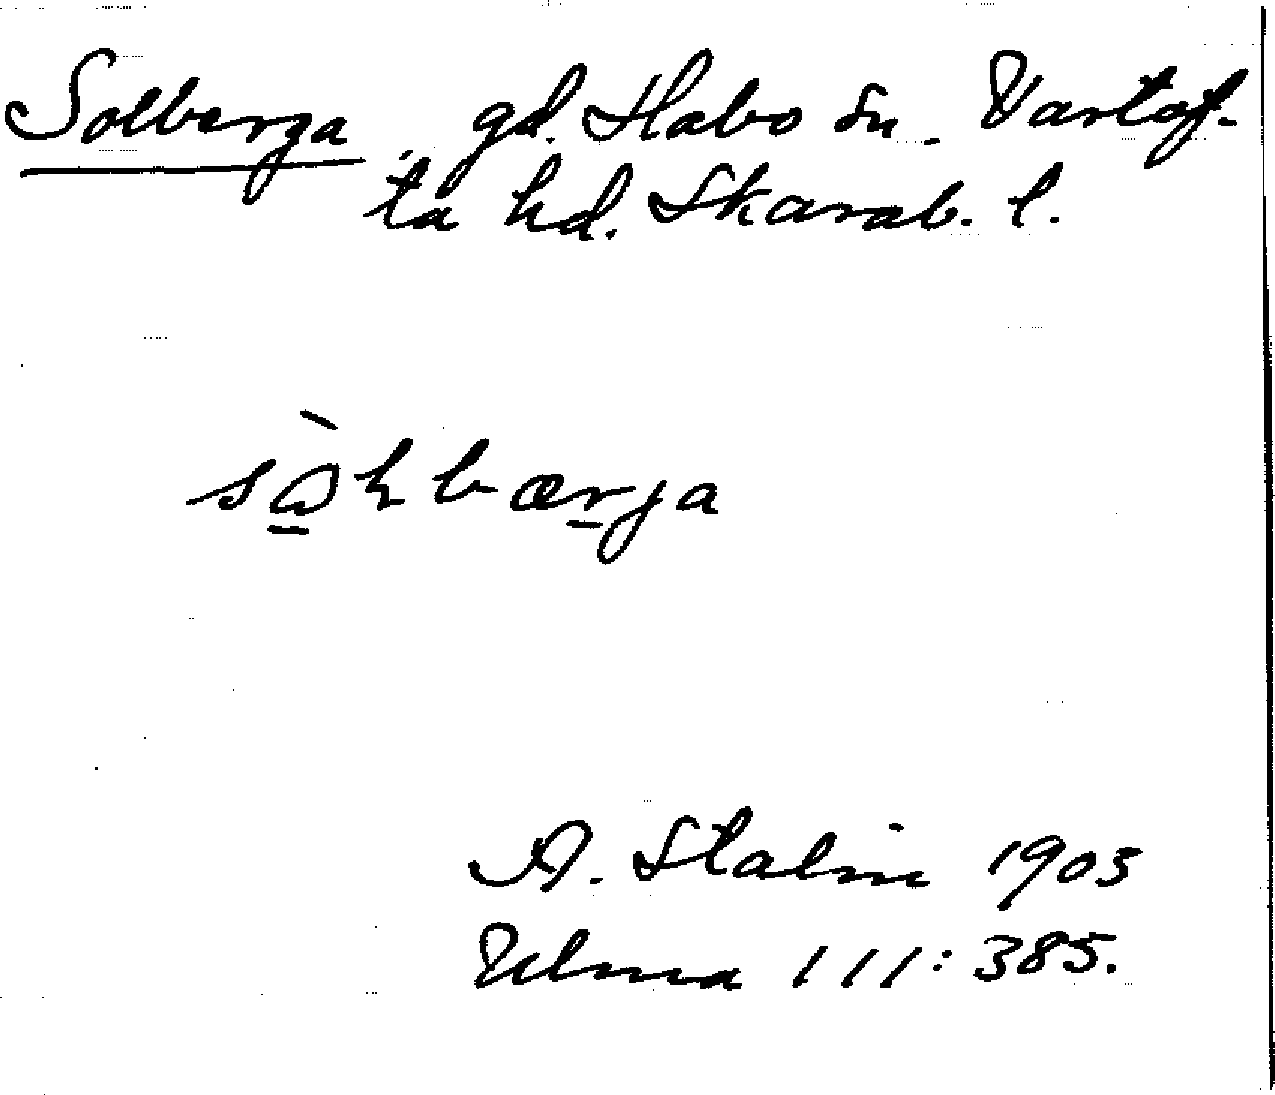 Solberga, gd. Habo sn. Vartof-
ta hd. Skarab. l.
A. Stalin 1905
Ulma 111:385.